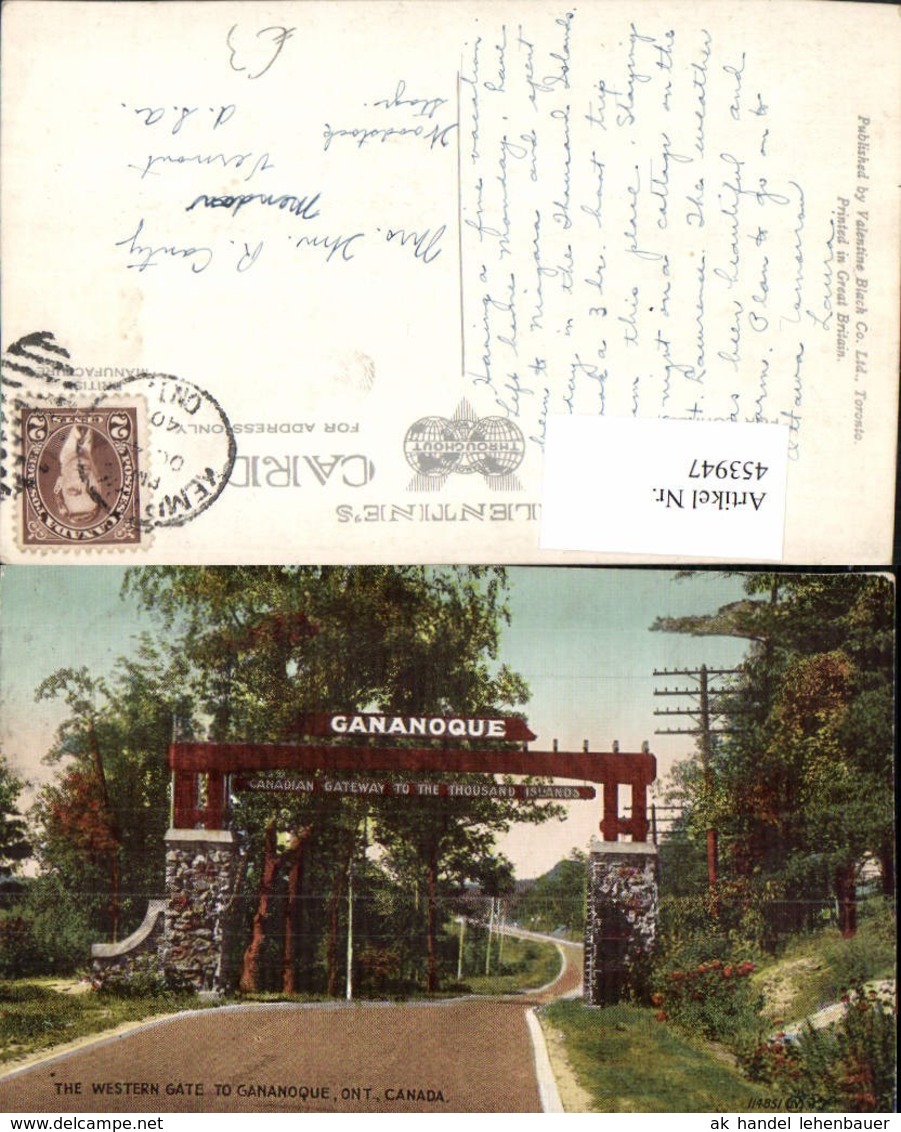 £3
Having a fine vacation
left here Monday. have
been to Niagara and spent
day in the Thousand Islands
and a 3 hr. boat trip
this place. Staying
night in a cottage on the
St. Lawrence. The weather
has been beautiful and
warm. Plan to go on to
Ottawa Tomorrow
Laura
Mrs. Wm. R. Canty
Mendon
Vermont
Woodstock
Stage.
U.S.A.
Published by Valentine Black Co. Ltd., Toronto.
Printed in Great Britain.
VALENTINE'S
CARD
FOR ADDRESS ONLY
THROUGHOUT
BRITISH
MANUFACTURE
2 2
CENTS
POSTES CANADA POSTAGE
PM
40
ONT
Artikel Nr.
453947
GANANOQUE
CANADIAN GATEWAY TO THE THOUSAND ISLANDS
THE WESTERN GATE TO GANANOQUE, ONT., CANADA.
114851
ak handel lehenbauer